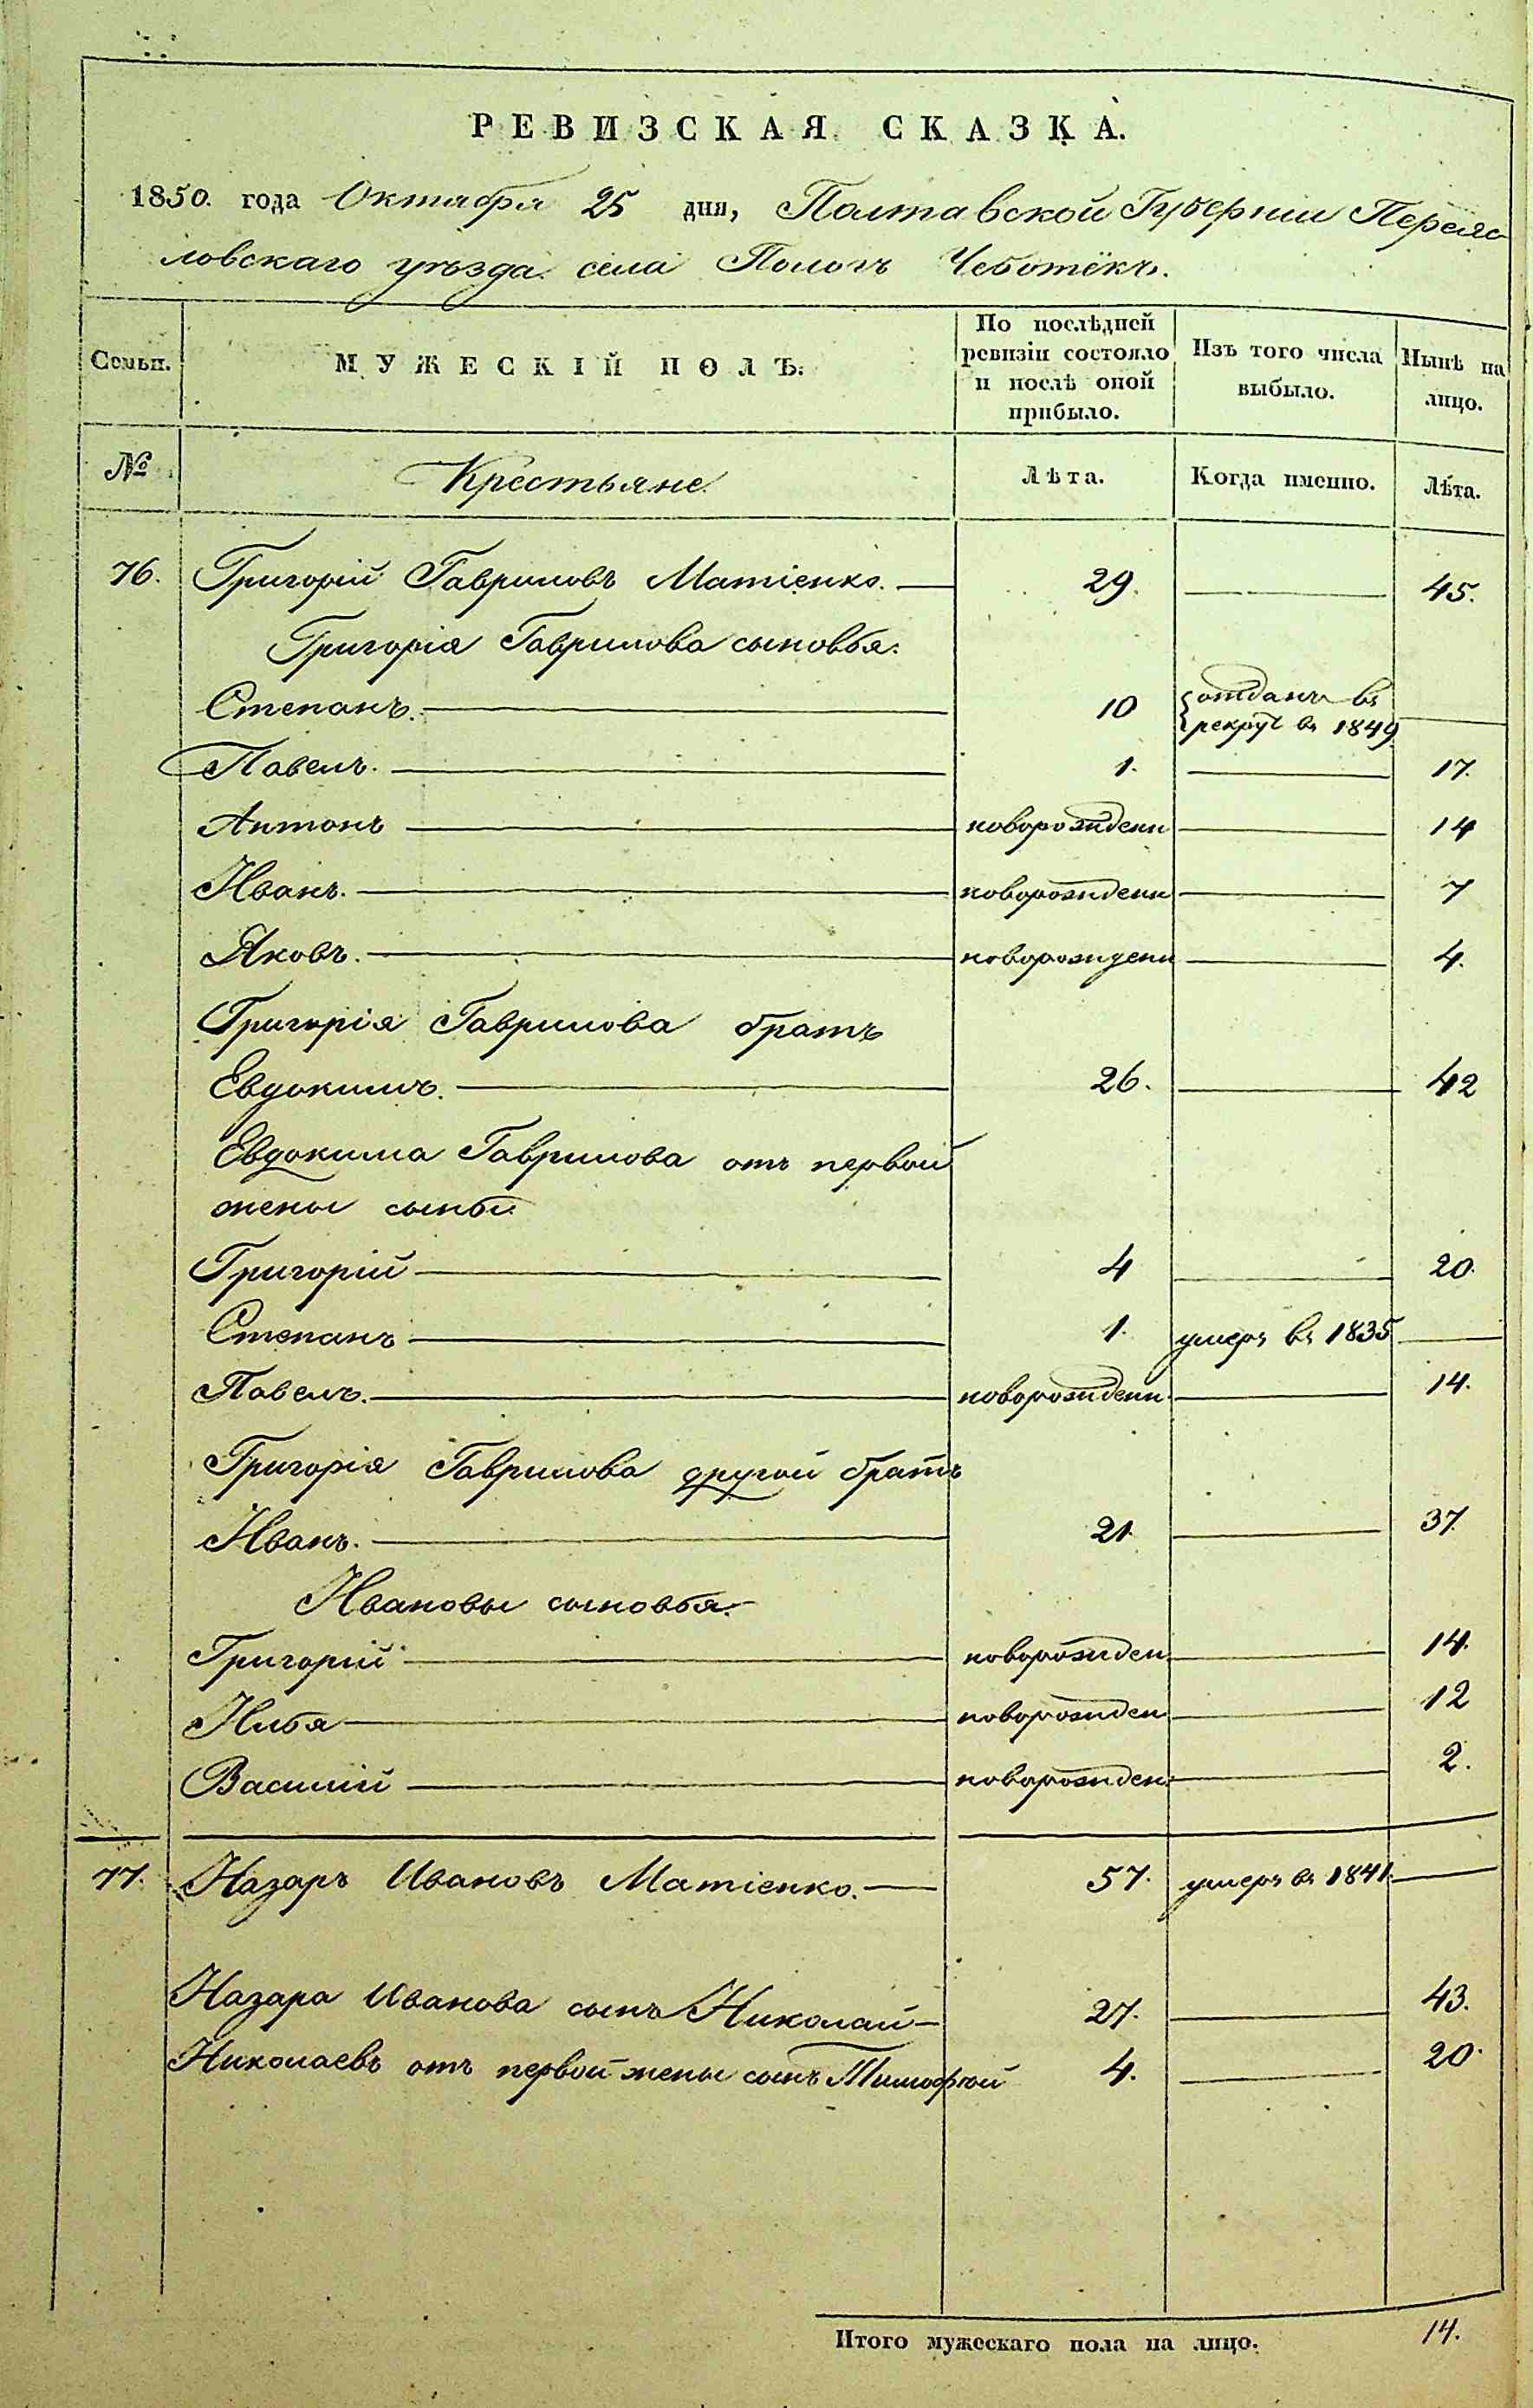 РЕВИЗСКАЯ СКАЗКА.
1850. года Октября 25 дня, Полтавской Губернии Переяс
ловскаго уѣзда села Пологъ Чеботёкъ.
Семьи. МУЖЕСКІЙ ПОЛЪ. По послѣдней ревизіи состояло и послѣ оной прибыло. Изъ того числа выбыло. Нынѣ на лицо.
№ Крестьяне Лѣта. Когда именно. Лѣта.
76. Григорій Гавриловъ Матіенко. 29. 45.
Григорія Гаврилова сыновья.
Степанъ. 10 отданъ въ рекрут въ 1849
Павелъ. 1. 17.
Антонъ новорожденн 14
Иванъ. новорожденн 7
Яковъ. новорожденн 4.
Григорія Гаврилова братъ
Евдокимъ. 26. 42
Евдокима Гаврилова отъ первой
жены сыны
Григорій 4 20.
Степанъ 1. умеръ въ 1835
Павелъ. новорожденн. 14.
Григорія Гаврилова другой братъ
Иванъ. 21 37.
Ивановы сыновья.
Григорій новорожден. 14.
Илья новорожден 12
Василій новорожден. 2.
77. Назаръ Ивановъ Матіенко. 57. умеръ въ 1841.
Назара Иванова сынъ Николай 27. 43.
Николаевъ отъ первой жены сынъ Тимофѣй 4. 20.
Итого мужескаго пола на лицо. 14.